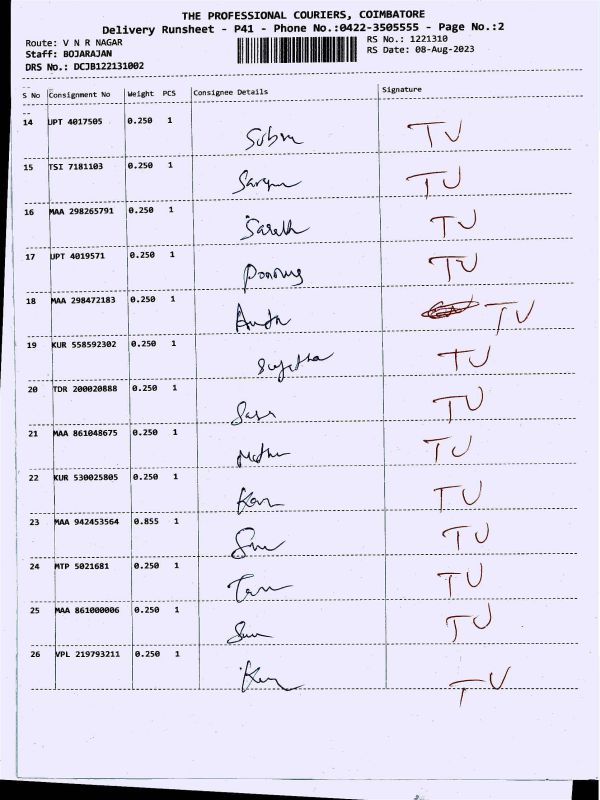 THE PROFESSIONAL COURIERS, COIMBATORE
Delivery Runsheet - P41 - Phone No.:0422-3505555 - Page No.:2
Route: V N R NAGAR RS No.: 1221310
Staff: BOJARAJAN RS Date: 08-Aug-2023
DRS No.: DCJB122131002
S No Consignment No Weight PCS Consignee Details Signature
14 UPT 4017505 0.250 1
TU
15 TSI 7181103 0.250 1
TU
16 MAA 298265791 0.250 1
Sarath TU
17 UPT 4019571 0.250 1
TU
18 MAA 298472183 0.250 1
TU
19 KUR 558592302 0.250 1
Sujetha TU
20 TDR 200020888 0.250 1
TU
21 MAA 861048675 0.250 1
TU
22 KUR 530025805 0.250 1
TU
23 MAA 942453564 0.855 1
TU
24 MTP 5021681 0.250 1
TU
25 MAA 861000006 0.250 1
TU
26 VPL 219793211 0.250 1
TU